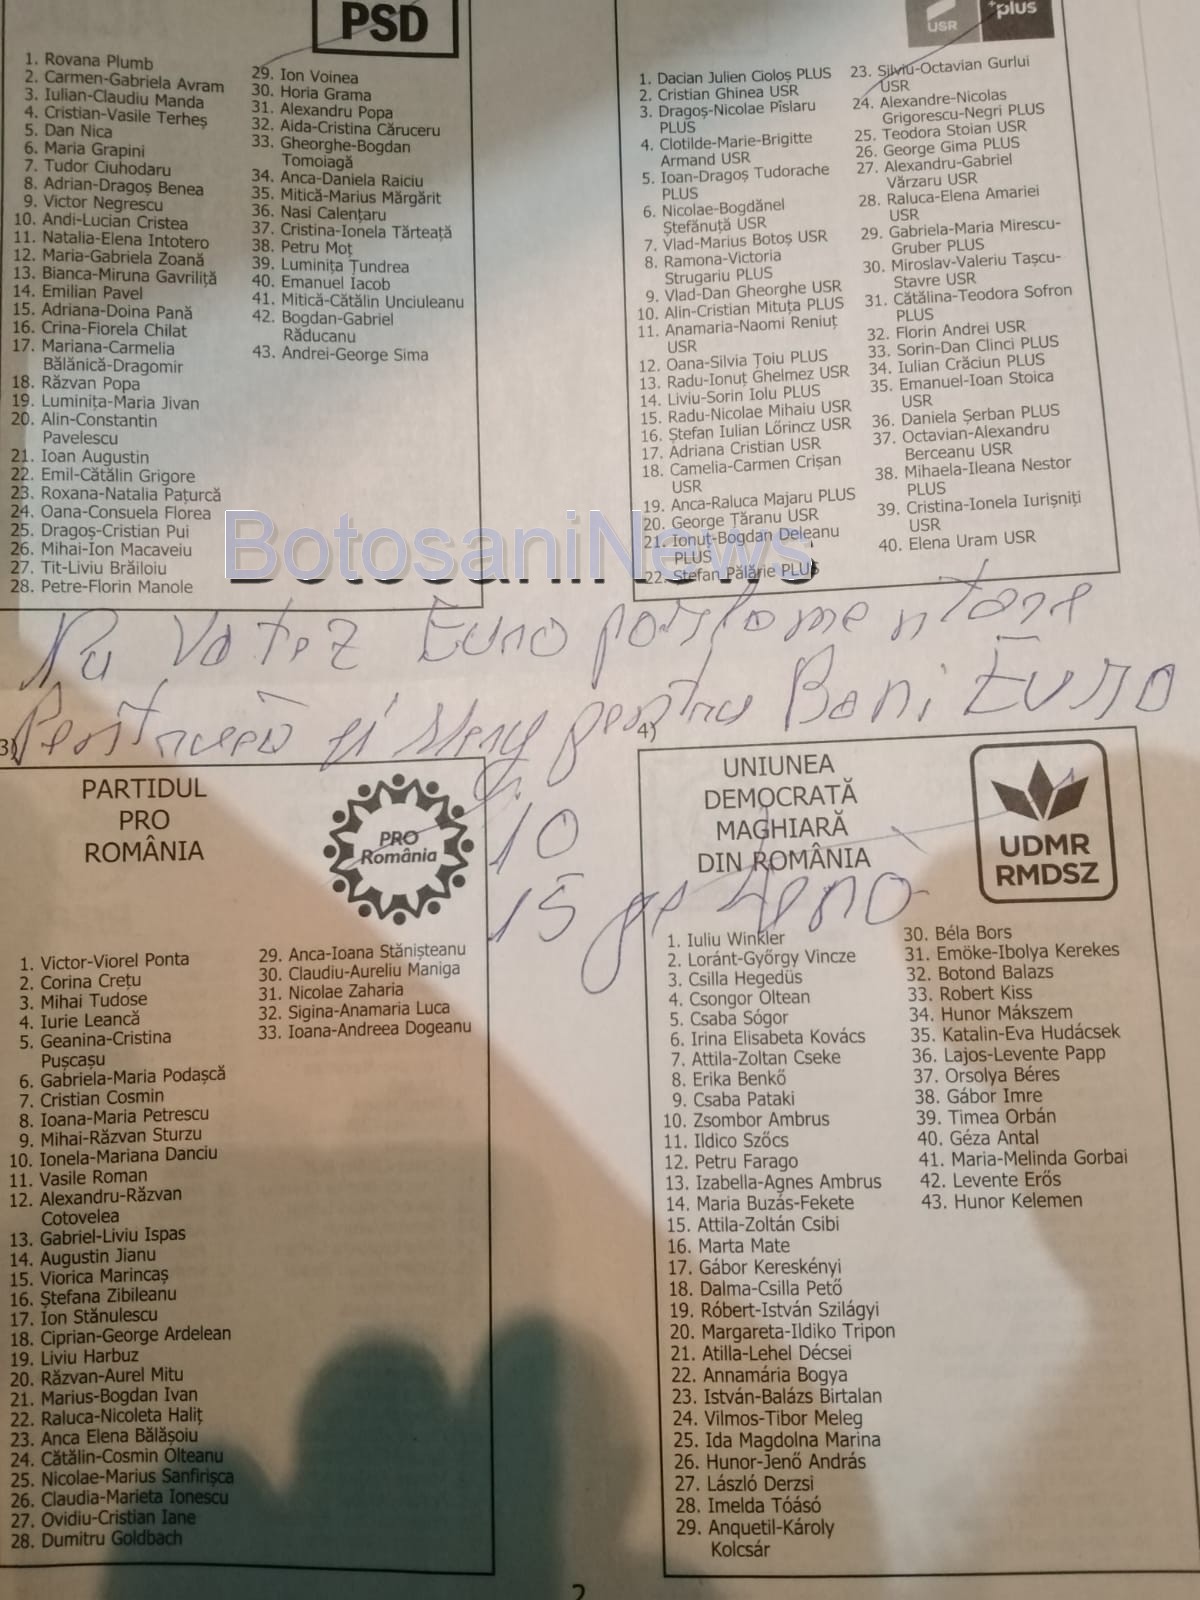 PSD
1. Rovana Plumb
2. Carmen-Gabriela Avram
3. Iulian-Claudiu Manda
4. Cristian-Vasile Terheș
5. Dan Nica
6. Maria Grapini
7. Tudor Ciuhodaru
8. Adrian-Dragoș Benea
9. Victor Negrescu
10. Andi-Lucian Cristea
11. Natalia-Elena Intotero
12. Maria-Gabriela Zoană
13. Bianca-Miruna Gavriliță
14. Emilian Pavel
15. Adriana-Doina Pană
16. Crina-Fiorela Chilat
17. Mariana-Carmelia
Bălănică-Dragomir
18. Răzvan Popa
19. Luminița-Maria Jivan
20. Alin-Constantin
Pavelescu
21. Ioan Augustin
22. Emil-Cătălin Grigore
23. Roxana-Natalia Pațurcă
24. Oana-Consuela Florea
25. Dragoș-Cristian Pui
26. Mihai-Ion Macaveiu
27. Tit-Liviu Brăiloiu
28. Petre-Florin Manole
29. Ion Voinea
30. Horia Grama
31. Alexandru Popa
32. Aida-Cristina Căruceru
33. Gheorghe-Bogdan
Tomoiagă
34. Anca-Daniela Raiciu
35. Mitică-Marius Mărgărit
36. Nasi Calențaru
37. Cristina-Ionela Tărteață
38. Petru Moț
39. Luminița Țundrea
40. Emanuel Iacob
41. Mitică-Cătălin Unciuleanu
42. Bogdan-Gabriel
Răducanu
43. Andrei-George Sima
USR
+plus
1. Dacian Julien Cioloș PLUS
2. Cristian Ghinea USR
3. Dragoș-Nicolae Pîslaru
PLUS
4. Clotilde-Marie-Brigitte
Armand USR
5. Ioan-Dragoș Tudorache
PLUS
6. Nicolae-Bogdănel
Ștefănuță USR
7. Vlad-Marius Botoș USR
8. Ramona-Victoria
Strugariu PLUS
9. Vlad-Dan Gheorghe USR
10. Alin-Cristian Mituța PLUS
11. Anamaria-Naomi Reniuț
USR
12. Oana-Silvia Țoiu PLUS
13. Radu-Ionuț Ghelmez USR
14. Liviu-Sorin Iolu PLUS
15. Radu-Nicolae Mihaiu USR
16. Ștefan Iulian Lőrincz USR
17. Adriana Cristian USR
18. Camelia-Carmen Crișan
USR
19. Anca-Raluca Majaru PLUS
20. George Țăranu USR
21. Ionuț-Bogdan Deleanu
PLUS
22. Ștefan Pălărie PLUS
23. Silviu-Octavian Gurlui
USR
24. Alexandre-Nicolas
Grigorescu-Negri PLUS
25. Teodora Stoian USR
26. George Gima PLUS
27. Alexandru-Gabriel
Vărzaru USR
28. Raluca-Elena Amariei
USR
29. Gabriela-Maria Mirescu-
Gruber PLUS
30. Miroslav-Valeriu Tașcu-
Stavre USR
31. Cătălina-Teodora Sofron
PLUS
32. Florin Andrei USR
33. Sorin-Dan Clinci PLUS
34. Iulian Crăciun PLUS
35. Emanuel-Ioan Stoica
USR
36. Daniela Șerban PLUS
37. Octavian-Alexandru
Berceanu USR
38. Mihaela-Ileana Nestor
PLUS
39. Cristina-Ionela Iurișniți
USR
40. Elena Uram USR
BotosaniNews
Nu Votez Europarlamentare
și pentru Bani Euro
10
15
3)
PARTIDUL
PRO
ROMÂNIA
PRO
România
1. Victor-Viorel Ponta
2. Corina Crețu
3. Mihai Tudose
4. Iurie Leancă
5. Geanina-Cristina
Pușcașu
6. Gabriela-Maria Podașcă
7. Cristian Cosmin
8. Ioana-Maria Petrescu
9. Mihai-Răzvan Sturzu
10. Ionela-Mariana Danciu
11. Vasile Roman
12. Alexandru-Răzvan
Cotovelea
13. Gabriel-Liviu Ispas
14. Augustin Jianu
15. Viorica Marincaș
16. Ștefana Zibileanu
17. Ion Stănulescu
18. Ciprian-George Ardelean
19. Liviu Harbuz
20. Răzvan-Aurel Mitu
21. Marius-Bogdan Ivan
22. Raluca-Nicoleta Haliț
23. Anca Elena Bălășoiu
24. Cătălin-Cosmin Olteanu
25. Nicolae-Marius Sanfirișca
26. Claudia-Marieta Ionescu
27. Ovidiu-Cristian Iane
28. Dumitru Goldbach
29. Anca-Ioana Stănișteanu
30. Claudiu-Aureliu Maniga
31. Nicolae Zaharia
32. Sigina-Anamaria Luca
33. Ioana-Andreea Dogeanu
4)
UNIUNEA
DEMOCRATĂ
MAGHIARĂ
DIN ROMÂNIA
UDMR
RMDSZ
1. Iuliu Winkler
2. Loránt-György Vincze
3. Csilla Hegedüs
4. Csongor Oltean
5. Csaba Sógor
6. Irina Elisabeta Kovács
7. Attila-Zoltan Cseke
8. Erika Benkő
9. Csaba Pataki
10. Zsombor Ambrus
11. Ildico Szőcs
12. Petru Farago
13. Izabella-Agnes Ambrus
14. Maria Buzás-Fekete
15. Attila-Zoltán Csibi
16. Marta Mate
17. Gábor Kereskényi
18. Dalma-Csilla Pető
19. Róbert-István Szilágyi
20. Margareta-Ildiko Tripon
21. Atilla-Lehel Décsei
22. Annamária Bogya
23. István-Balázs Birtalan
24. Vilmos-Tibor Meleg
25. Ida Magdolna Marina
26. Hunor-Jenő András
27. László Derzsi
28. Imelda Tóásó
29. Anquetil-Károly
Kolcsár
30. Béla Bors
31. Emöke-Ibolya Kerekes
32. Botond Balazs
33. Robert Kiss
34. Hunor Mákszem
35. Katalin-Eva Hudácsek
36. Lajos-Levente Papp
37. Orsolya Béres
38. Gábor Imre
39. Timea Orbán
40. Géza Antal
41. Maria-Melinda Gorbai
42. Levente Erős
43. Hunor Kelemen
2